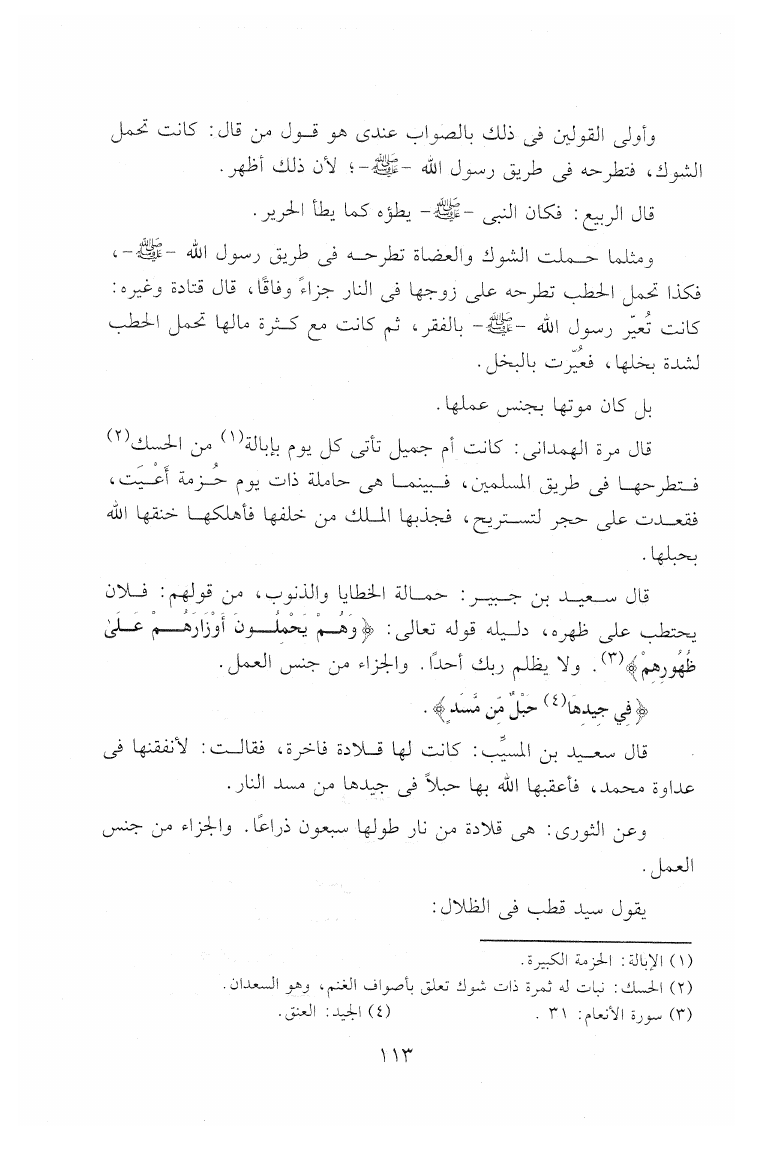 وأولى القولين فى ذلك بالصواب عندى هو قـول من قال: كانت تحمل
الشوك، فتطرحه فى طريق رسول الله -ﷺ-؛ لأن ذلك أظهر.
قال الربيع: فكان النبى -ﷺ- يطؤه كما يطأ الحرير.
ومثلما حـملت الشوك والعضاة تطرحـه فى طريق رسول الله -ﷺ-،
فكذا تحمل الحطب تطرحه على زوجها فى النار جزاءً وفاقًا، قال قتادة وغيره:
كانت تُعيّر رسول الله -ﷺ- بالفقر، ثم كانت مع كـثرة مالها تحمل الحطب
لشدة بخلها، فعُيّرت بالبخل.
بل كان موتها بجنس عملها.
قال مرة الهمدانى: كانت أم جميل تأتى كل يوم بإبالة(١) من الحسك(٢)
فـتطرحهـا فى طريق المسلمين، فـبينمـا هى حاملة ذات يوم حُـزمة أَعْـيَت،
فقعدت على حجر لتسـتريح، فجذبها الملـك من خلفها فأهلكهـا خنقها الله
بحبلها.
قال سـعيـد بن جـبيـر: حمـالة الخطايا والذنوب، من قولهم: فـلان
يحتطب على ظهره، دلـيله قوله تعالى: ﴿وَهُـمْ يَحْمِلُـونَ أَوْزَارَهُـمْ عَـلَىٰ
ظُهُورِهِمْ﴾(٣). ولا يظلم ربك أحدًا. والجزاء من جنس العمل.
﴿فِي جِيدِهَا(٤) حَبْلٌ مِّن مَّسَدٍ﴾.
قال سعـيد بن المسيِّب: كانت لها قـلادة فاخرة، فقالـت: لأنفقنها فى
عداوة محمد، فأعقبها الله بها حبلاً فى جيدها من مسد النار.
وعن الثورى: هى قلادة من نار طولها سبعون ذراعًا. والجزاء من جنس
العمل.
يقول سيد قطب فى الظلال:
(١) الإبالة: الحزمة الكبيرة.
(٢) الحسك: نبات له ثمرة ذات شوك تعلق بأصواف الغنم، وهو السعدان.
(٣) سورة الأنعام: ٣١ . (٤) الجيد: العنق.
١١٣